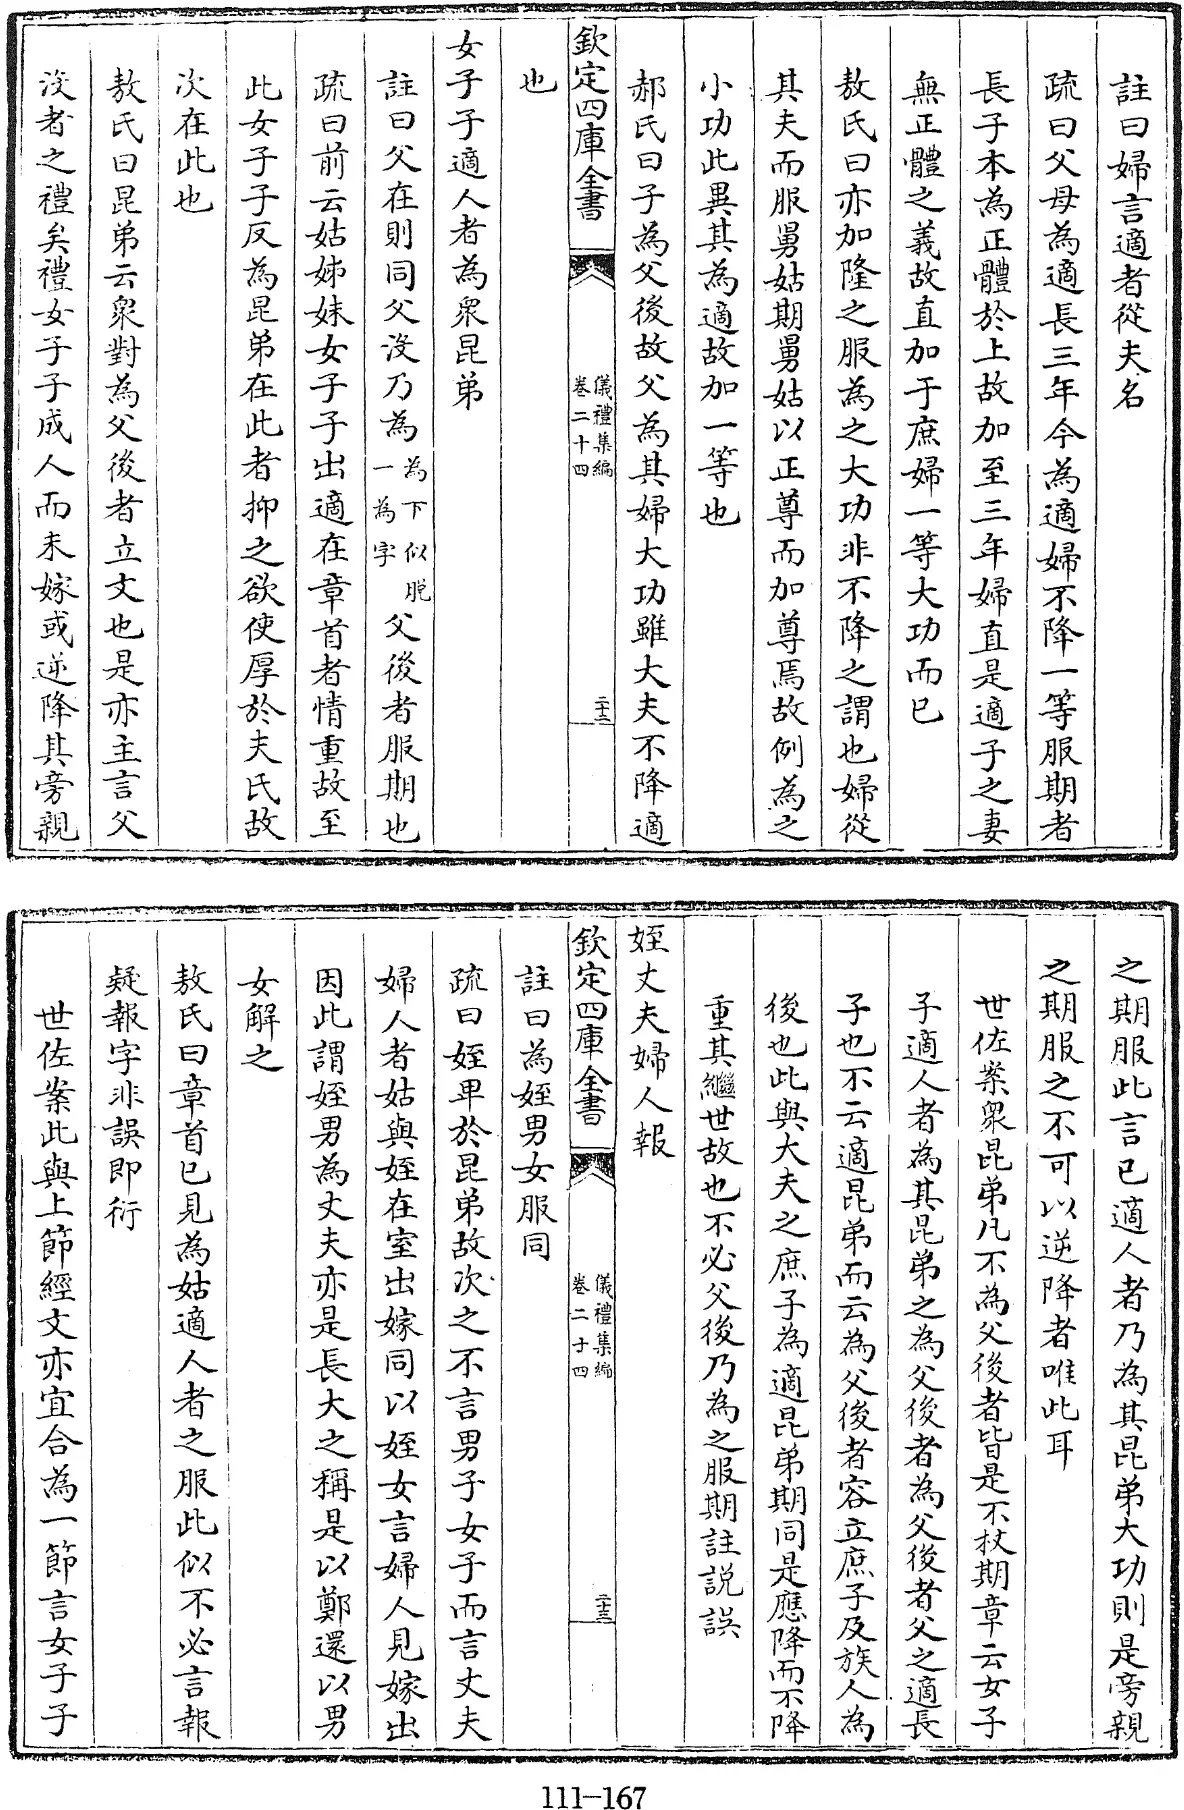 註曰婦言適者從夫名
疏曰父母為適長三年今為適婦不降一等服期者
長子本為正體於上故加至三年婦直是適子之妻
無正體之義故直加于庶婦一等大功而已
敖氏曰亦加隆之服為之大功非不降之謂也婦從
其夫而服舅姑期舅姑以正尊而加尊焉故例為之
小功此異其為適故加一等也
郝氏曰子為父後故父為其婦大功雖大夫不降適
欽定四庫全書
儀禮集編
卷二十四
二十三
也
女子子適人者為衆昆弟
註曰父在則同父沒乃為為下似脫一為字父後者服期也
疏曰前云姑姊妹女子子出適在章首者情重故至
此女子子反為昆弟在此者抑之欲使厚於夫氏故
次在此也
敖氏曰昆弟云衆對為父後者立文也是亦主言父
沒者之禮矣禮女子子成人而未嫁或逆降其旁親
之期服此言已適人者乃為其昆弟大功則是旁親
之期服之不可以逆降者唯此耳
世佐案衆昆弟凡不為父後者皆是不杖期章云女子
子適人者為其昆弟之為父後者為父後者父之適長
子也不云適昆弟而云為父後者容立庶子及族人為
後也此與大夫之庶子為適昆弟期同是應降而不降
重其繼世故也不必父後乃為之服期註説誤
姪丈夫婦人報
欽定四庫全書
儀禮集編
卷二十四
二十三
註曰為姪男女服同
疏曰姪卑於昆弟故次之不言男子女子而言丈夫
婦人者姑與姪在室出嫁同以姪女言婦人見嫁出
因此謂姪男為丈夫亦是長大之稱是以鄭還以男
女解之
敖氏曰章首已見為姑適人者之服此似不必言報
疑報字非誤即衍
世佐案此與上節經文亦宜合為一節言女子子
111-167